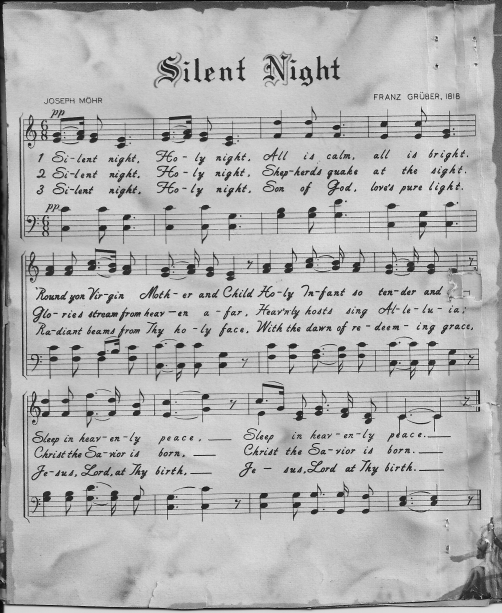 Silent Night
JOSEPH MOHR
FRANZ GRÜBER, 1818
pp
1 Si-lent night, Ho-ly night, All is calm, all is bright.
2 Si-lent night, Ho-ly night, Shep-herds quake at the sight.
3 Si-lent night, Ho-ly night, Son of God, love's pure light.
pp
'Round yon Vir-gin Moth-er and Child Ho-ly In-fant so ten-der and
Glo-ries stream from heav-en a-far, Heav'nly hosts sing Al-le-lu-ia;
Ra-diant beams from Thy ho-ly face, With the dawn of re-deem-ing grace,
Sleep in heav-en-ly peace. Sleep in heav-en-ly peace.
Christ the Sa-vior is born, Christ the Sa-vior is born.
Je-sus, Lord, at Thy birth, Je-sus, Lord at Thy birth.